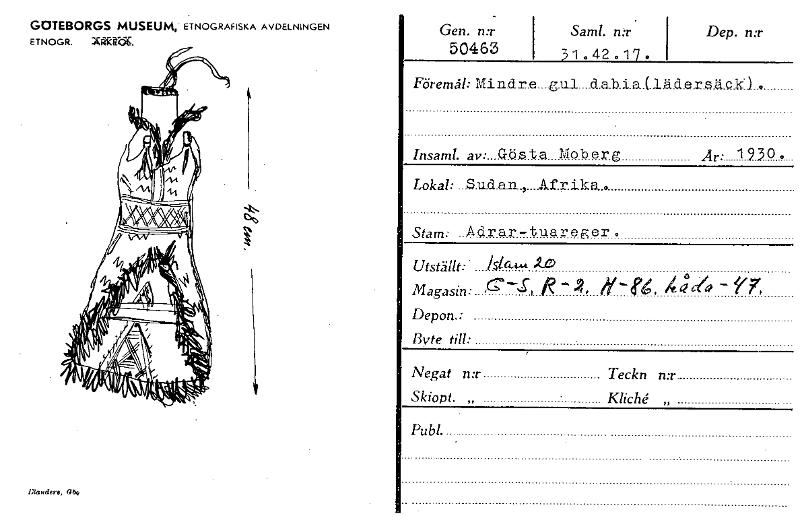 GÖTEBORGS MUSEUM, ETNOGRAFISKA AVDELNINGEN
ETNOGR. ARKEOL.
48 cm.
Gen. n:r Saml. n:r Dep. n:r
50463 31.42.17.
Föremål: Mindre gul dabia(lädersäck).
Insaml. av: Gösta Moberg År: 1930.
Lokal: Sudan, Afrika.
Stam: Adrar-tuareger.
Utställt: Islam 20
Magasin: G-S. R-2. H-86. låda-47.
Depon.:
Byte till:
Negat n:r Teckn n:r
Skiopt. „ Kliché „
Publ.